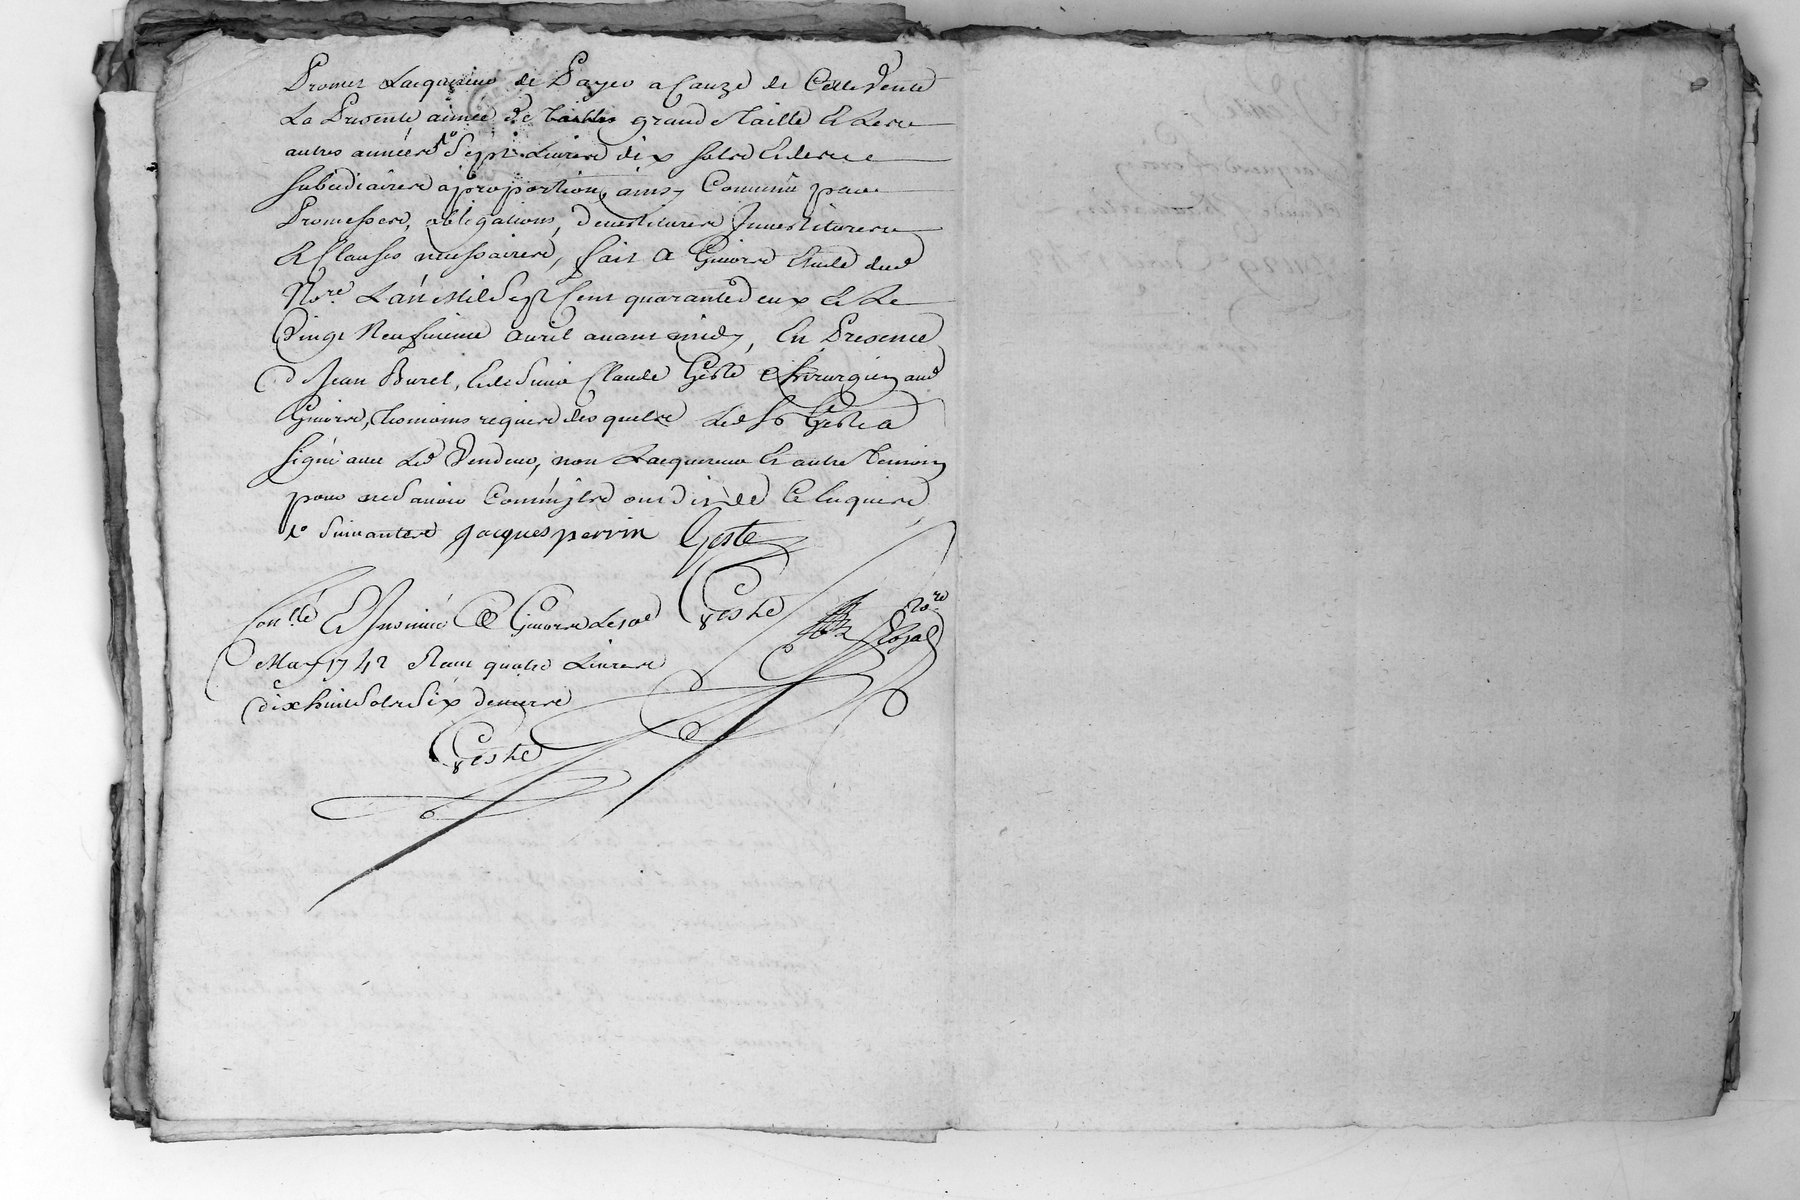 Promet Lacquereur de Payer a Cauze de Cette Vente
La Presente année de tailles grande taille et les
autres années Sept Livres dix sols et les
subcidiaires a proportion, ainsy Convenu par
Promesses, obligations, devestitures Investitures
et Clauses necessaires, fait a Givors Etude dud
No.re L'an Mil Sept Cent quarante deux et Le
Vingt Neufvieme avril avant midy, En Presence
de Jean Buret, et de Sieur Claude Geste Chirurgien aud
Givors, temoins requis lesquels Led Sr Geste a
signé avec Led Vendeur, non Lacquereur et autre temoin
pour ne Savoir Comm'ils ont dit de Ce Enquis
et Suivant jacques perrin Geste
Geste No.re Royal
Con.llé Et Insinué a Givors Le
May 1742 Reçu quatre Livres
dix huit Sols Six deniers
Geste